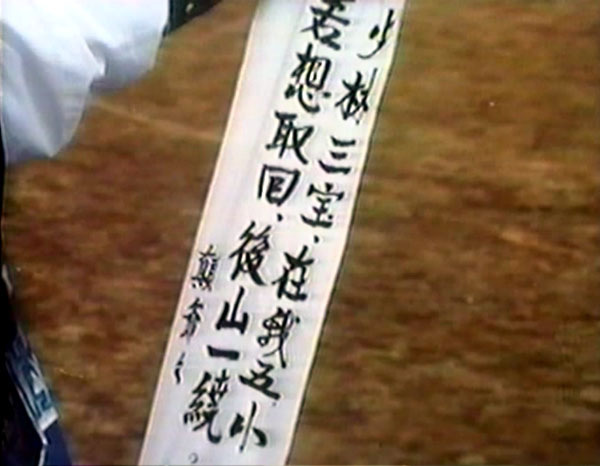 少林三宝、在我五小
若想取回、後山一繞。